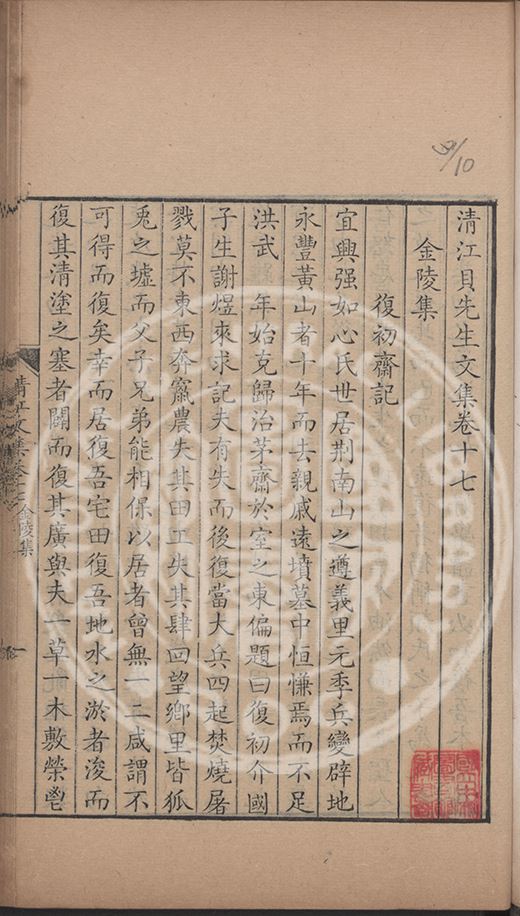 9/10
清江貝先生文集卷十七
金陵集
復初齋記
宜興强如心氏世居荆南山之遵義里元季兵變辟地
永豐黄山者十年而去親戚遠墳墓中恒慊焉而不足
洪武 年始克歸治茅齋於室之東偏題曰復初介國
子生謝煜來求記夫有失而後復當大兵四起焚燒屠
戮莫不東西奔竄農失其田工失其肆回望鄉里皆狐
兎之墟而父子兄弟能相保以居者曾無一二咸謂不
可得而復矣幸而居復吾宅田復吾地水之淤者浚而
復其清塗之塞者闢而復其廣與夫一草一木敷榮鬯
清江文集卷十七 金陵集